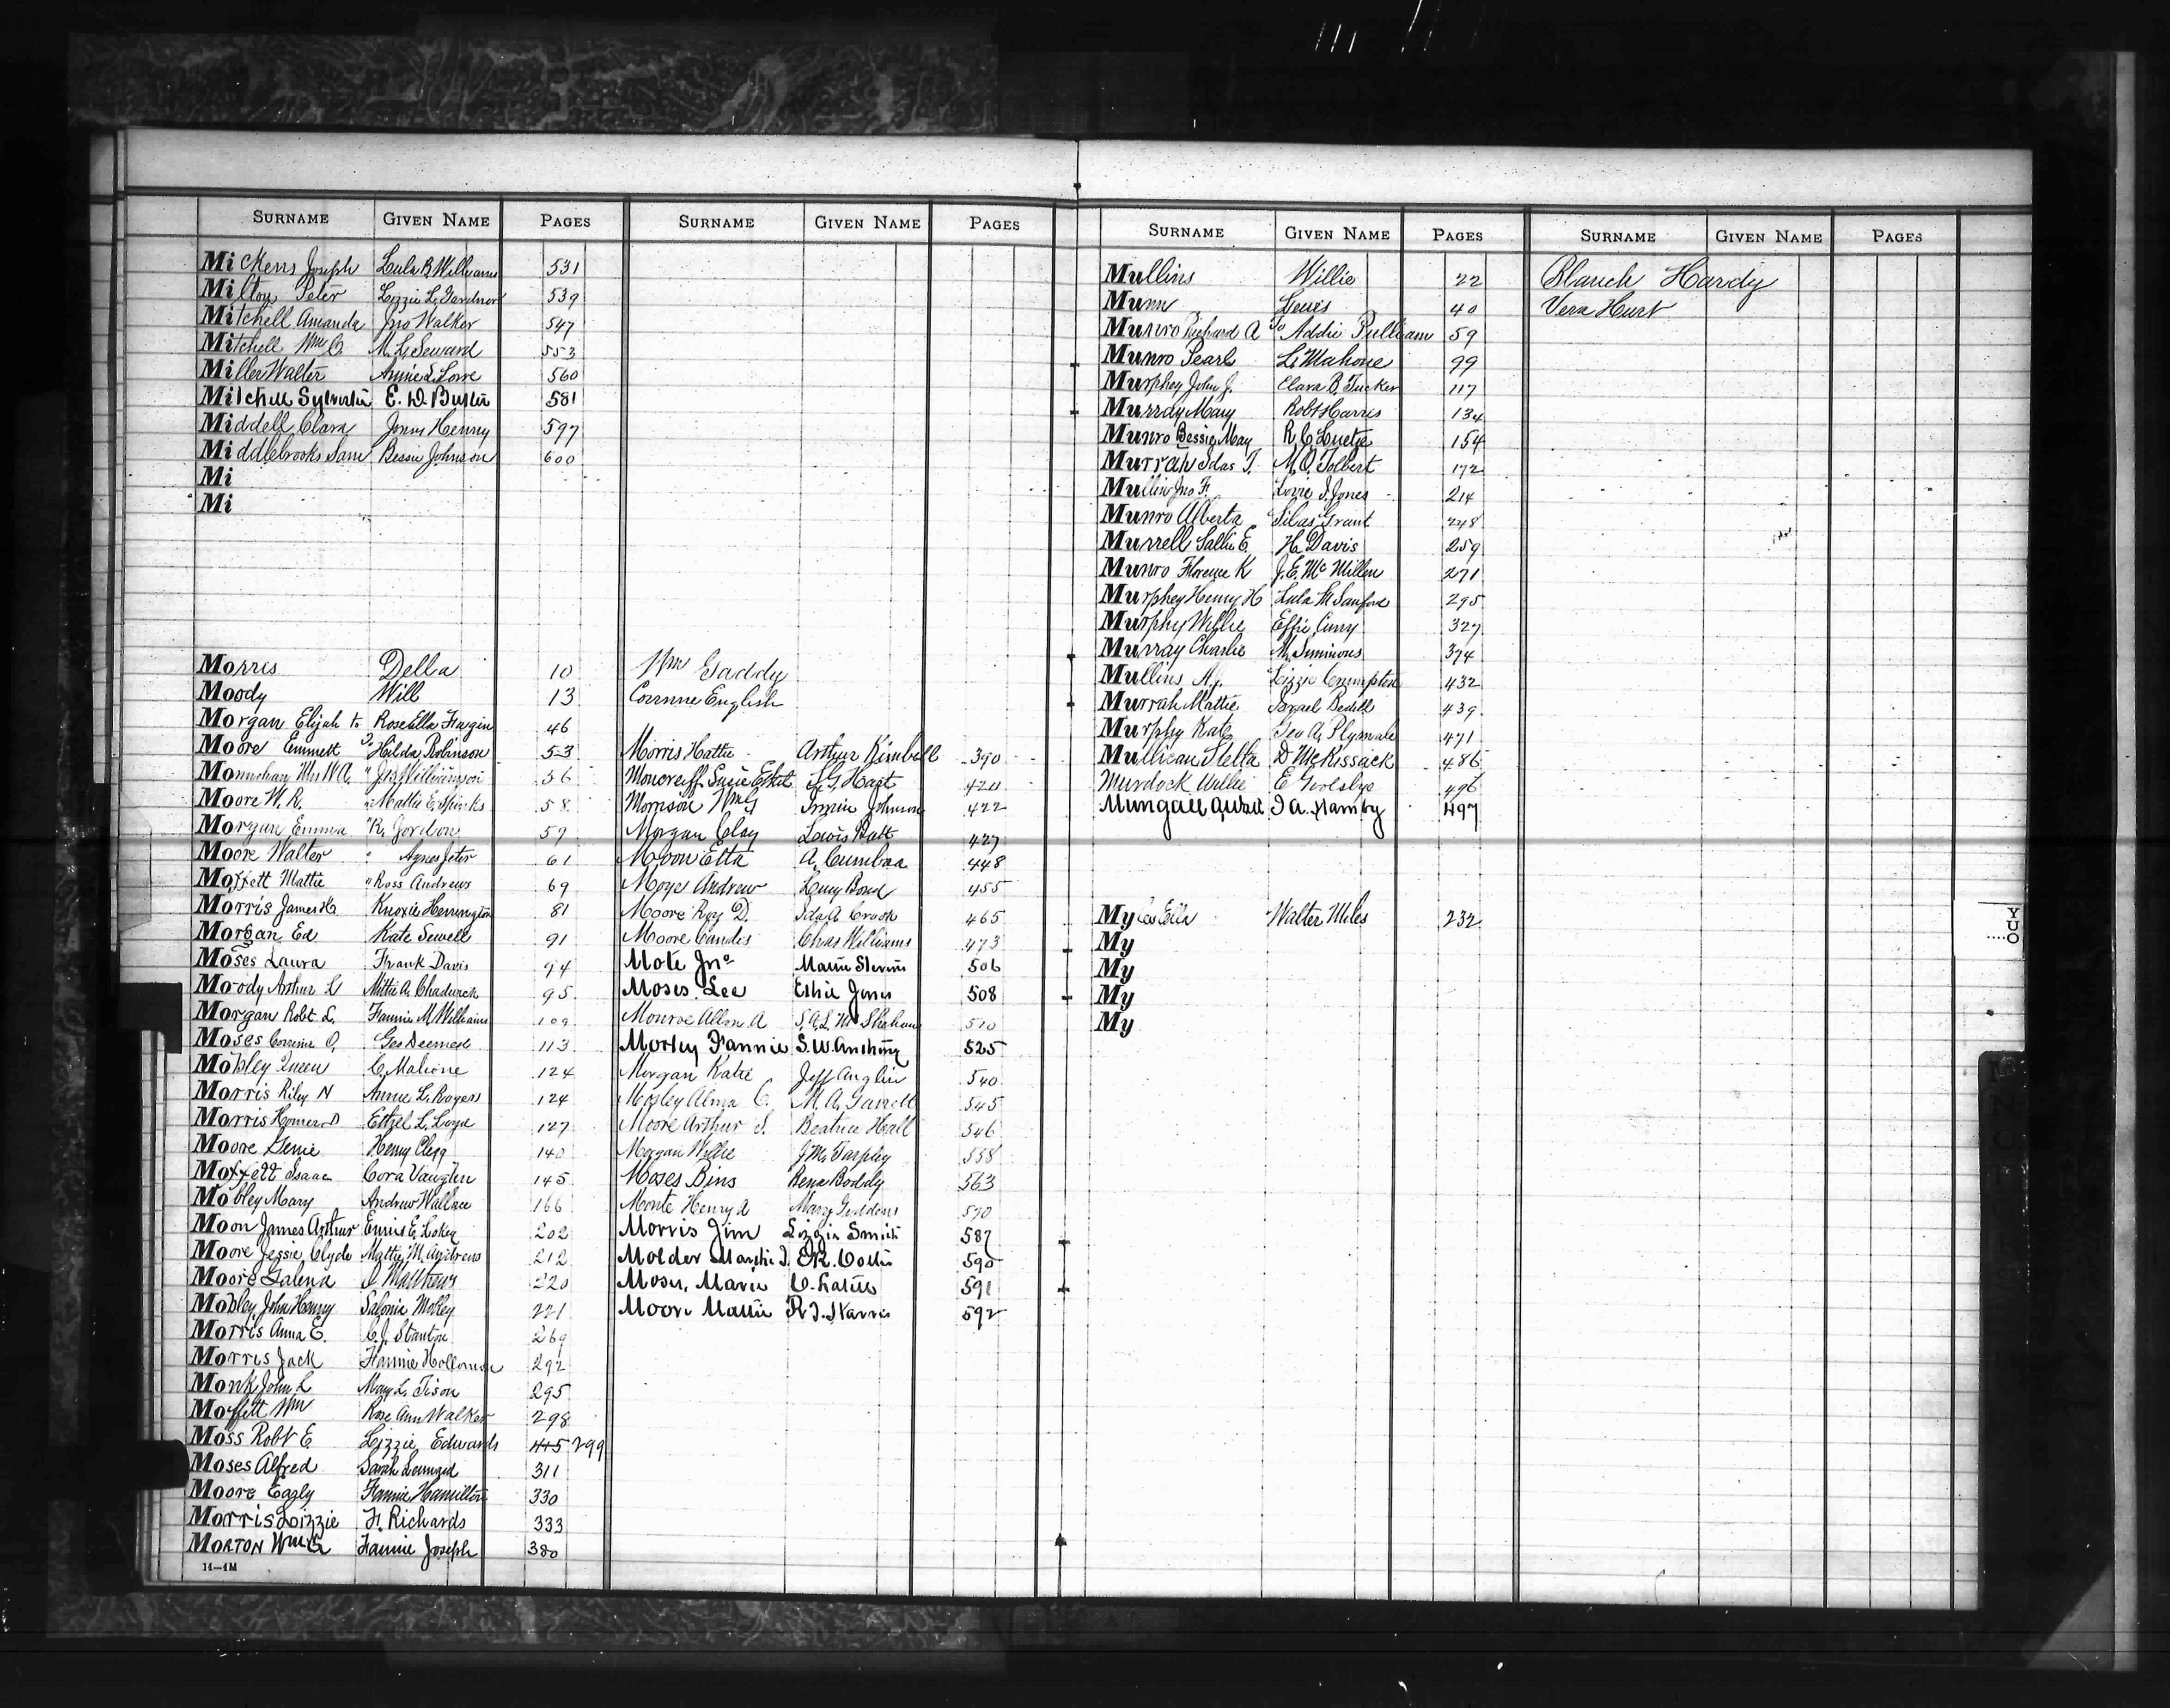 SURNAME GIVEN NAME PAGES SURNAME GIVEN NAME PAGES
Mickens Joseph Lula B Williams 531
Milton Peter Lizzie L. Gardner 539
Mitchell Amanda Jno Walker 547
Mitchell Wm C. M. L. Seward 553
Miller Walter Annie L. Lowe 560
Mitchell Sylvester E. D. Buster 581
Middell Clara Henny 597
Middlebrooks Sam Bessie Johnson 600
Mi
Mi
Morris Della 10 Wm Gaddy
Moody Will 13 Corinne English
Morgan Elijah to RoseElla 46
Moore Emmett To Hilda Robinson 53 Morris Hattie Arthur Kimbell 390
Mrs W.A. " Williamson 56 Moncreiff Susie S. T. Hart 420
Moore W. R. " Mattie E. Spinks 58 Morrison Wm Johnson 422
Morgan Emma " R. Gordon 59 Morgan Clay Lewis Batt 427
Moore Walter " Agnes Jeter 61 Moon Etta A. Cumbaa 448
Moffett Mattie " Ross Andrews 69 Moye Andrew Lucy Bond 455
Morris James H. Knoxie Herrington 81 Moore Roy D. Ida A Crook 465
Morgan Ed Kate Sewell 91 Moore Candis Chas Williams 473
Moses Laura Frank Davis 94 Mote Jno Mattie Stevens 506
Moody Arthur L Mittie A. Chadwick 95 Moses Lee Esther Jones 508
Morgan Robt L. Fannie M Williams 109 Monroe Allen A S.A.L. 510
Moses Corrine O. Geo Deemed 113 Morley Fannie S. W. Anthony 525
Mobley Queen C. Malone 124 Morgan Katie Jeff Anglin 540
Morris Riley N Annie L. Rogers 124 Mosley Alma C. M. A. Garrett 545
Morris Homer D Ethel L. Loyd 127 Moore Arthur S. Beatrice Hall 546
Moore Genie Henry Clegg 140 Morgan Willie J. M. Tarpley 558
Moffett Isaac Cora Vaughn 145 Moses Bins Rena Boddy 563
Mobley Mary Andrew Wallace 166 Monte Henry A Mary Giddens 570
Moon James Arthur Ennis E. Lokey 202 Morris Jim Lizzie Smith 587
Moore Jessie Clyde Mattie M. Andrews 212 Molder Marthe J. E.R. Collis 590
Moore Galena I. Matthews 220 Moses, Marie 591
Mobley John Henry Salonia Mobley 221 Moore Mattie R. J. Harris 592
Morris Anna E. C. J. Stanton 269
Morris Jack Fannie Holloman 292
Monk John L May L. Tison 295
Moffett Wm Rose Ann Walker 298
Moss Robt E. Lizzie Edwards 415 299
Moses Alfred Sarah 311
Moore Eagly Fannie Hamilton 330
Morris Loizzie H. Richards 333
MORTON Wm G Fannie Joseph 380
14—4M
SURNAME GIVEN NAME PAGES SURNAME GIVEN NAME PAGES
Mullins Willie 22 Blanch Hardy
Munn Lewis 40 Vera Hurt
Munro Richard A To Addie Pulliam 59
Munro Pearl L. Mahone 99
Murphey John J. Clara B. Tucker 117
Murray Mary Robt Harris 134
Munro Bessie May R. C. Luetje 154
Murrah Idas T. M. O. Tolbert 172
Mullin Jno F. Lovie I. Jones 214
Munro Alberta Silas Grant 248
Murrell Sallie E. H. Davis 259
Munro Florence K J. E. McMillen 271
Murphey Henry H Lula M Sanford 295
Murphy Willie Effie Curry 327
Murray Charlie M. Simmons 374
Mullins A. J. Lizzie Crumpton 432
Murrah Mattie Israel Bedell 439
Murphy Kate Geo A. Plymale 471
Mullican Stella D McKissack 486
Murdock Willie E 496
Mungall I A. Hamby 497
My Ella Walter Miles 232
My
My
My
My
YUO